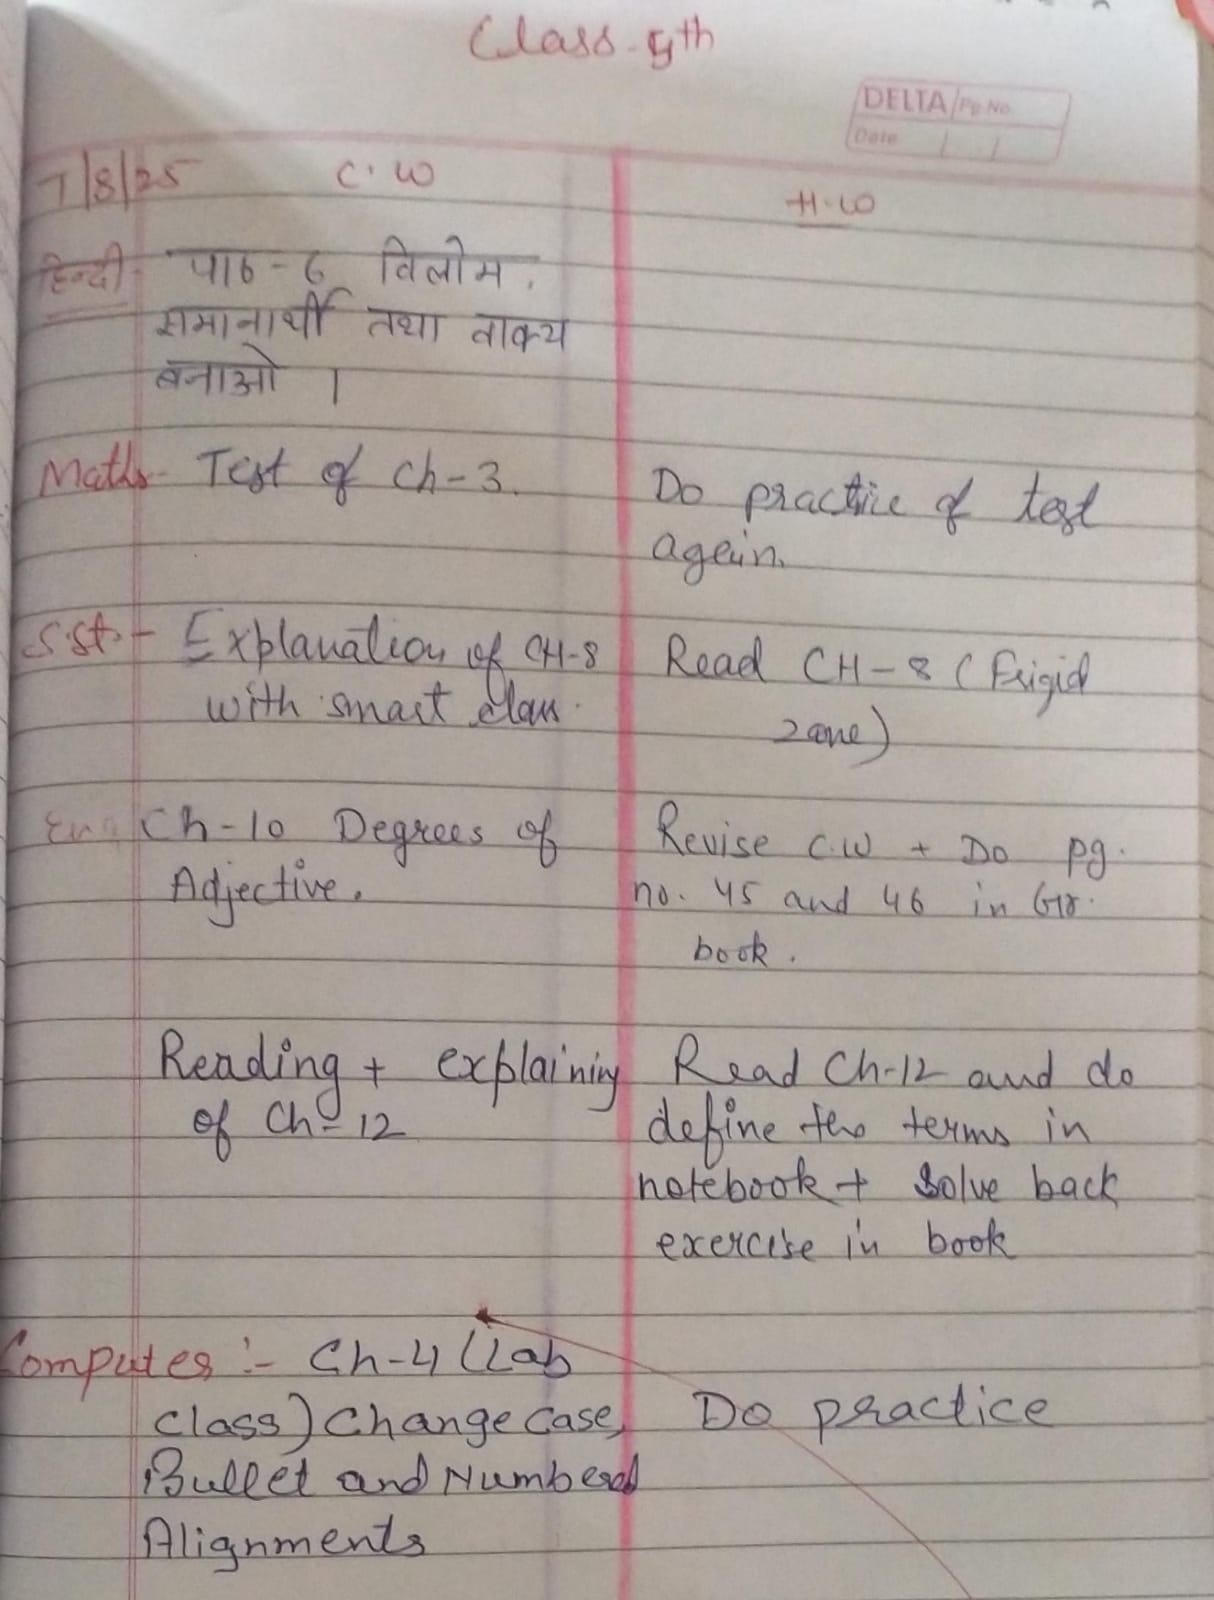 Class-5th
DELTA/Pg No.
Date
7/8/25 C.W
H.W
हिन्दी- पाठ-6 विलोम,
समानार्थी तथा वाक्य
बनाओ ।
Maths- Test of Ch-3.
Do practice of test
again.
S.St.- Explanation of CH-8
with smart class.
Read CH-8 (Frigid
zone)
Eng Ch-10 Degrees of
Adjective.
Revise C.W + Do pg.
no. 45 and 46 in Gr.
book.
Reading + explaining
of Ch-12
Read Ch-12 and do
define the terms in
notebook + solve back
exercise in book
Computer:- Ch-4 (Lab
class) Change case,
Bullet and Numbered
Alignments
Do practice